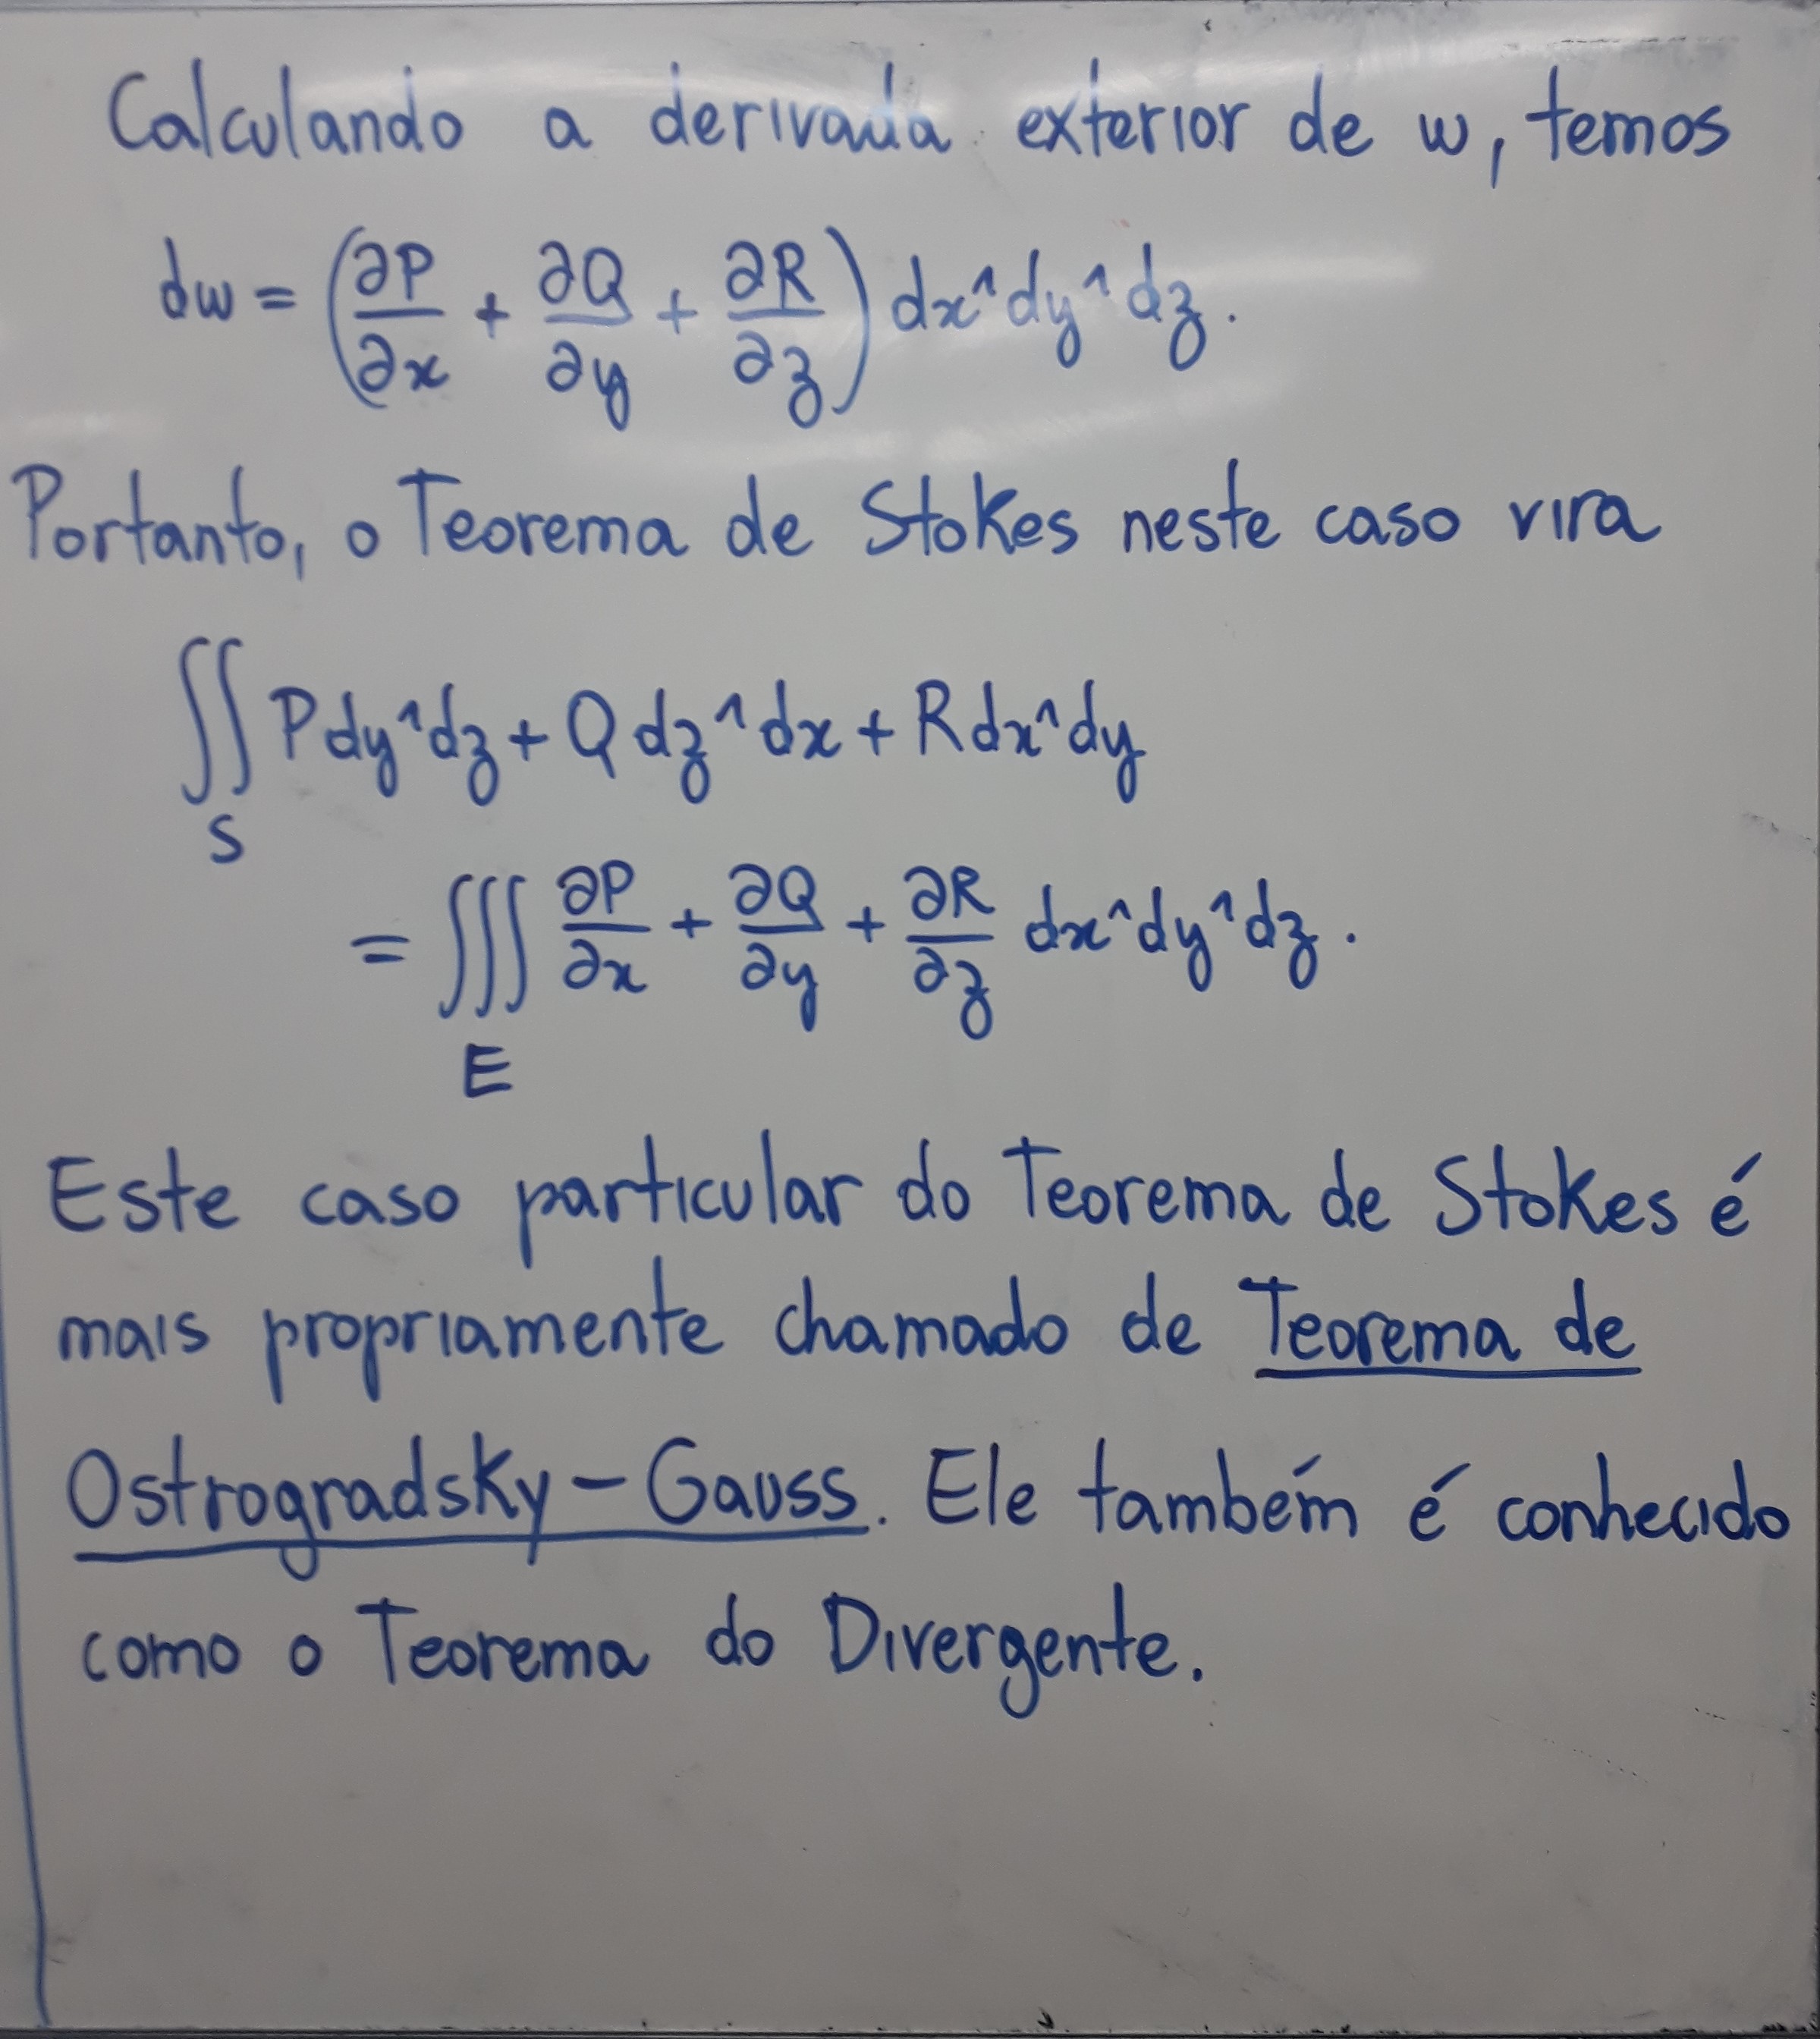 Calculando a derivada exterior de w, temos
dw = (∂P/∂x + ∂Q/∂y + ∂R/∂z) dx^dy^dz.
Portanto, o Teorema de Stokes neste caso vira
∬_S P dy^dz + Q dz^dx + R dx^dy
= ∭_E ∂P/∂x + ∂Q/∂y + ∂R/∂z dx^dy^dz.
Este caso particular do Teorema de Stokes é
mais propriamente chamado de Teorema de
Ostrogradsky-Gauss. Ele também é conhecido
como o Teorema do Divergente.